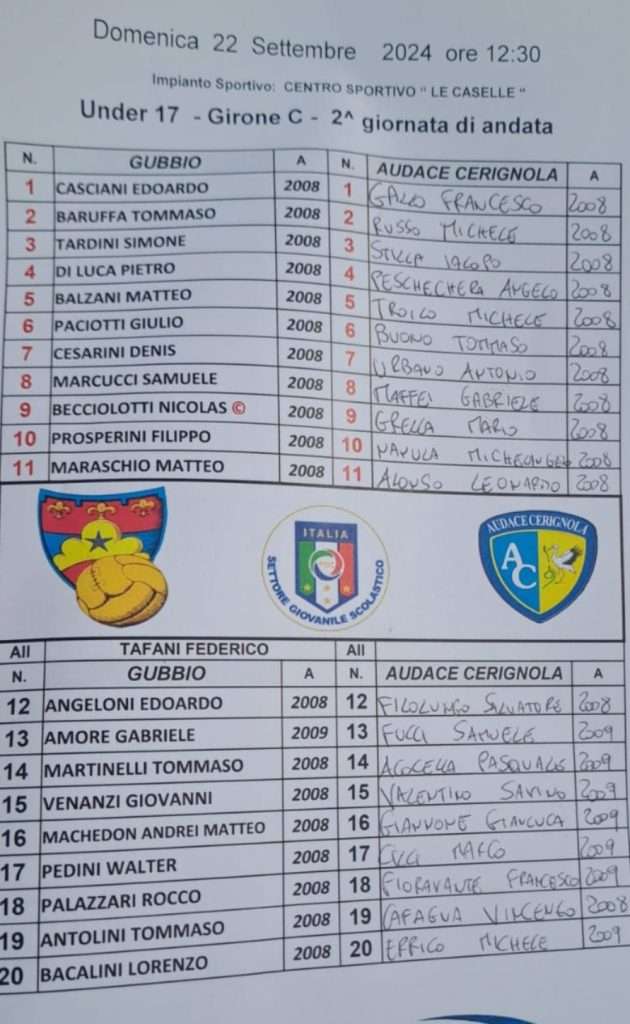 Domenica 22 Settembre 2024 ore 12:30
Impianto Sportivo: CENTRO SPORTIVO " LE CASELLE "
Under 17 - Girone C - 2^ giornata di andata
N. GUBBIO A N. AUDACE CERIGNOLA A
1 CASCIANI EDOARDO 2008 1 GALLO FRANCESCO 2008
2 BARUFFA TOMMASO 2008 2 RUSSO MICHELE 2008
3 TARDINI SIMONE 2008 3 STILLA IACOPO 2008
4 DI LUCA PIETRO 2008 4 PESCHECHERA ANGELO 2008
5 BALZANI MATTEO 2008 5 TROILO MICHELE 2008
6 PACIOTTI GIULIO 2008 6 BUONO TOMMASO 2008
7 CESARINI DENIS 2008 7 URBANO ANTONIO 2008
8 MARCUCCI SAMUELE 2008 8 MAFFEI GABRIELE 2008
9 BECCIOLOTTI NICOLAS © 2008 9 GRELLA MARIO 2008
10 PROSPERINI FILIPPO 2008 10 MICHELANGELO 2008
11 MARASCHIO MATTEO 2008 11 ALONSO LEONARDO 2008
ITALIA
SETTORE GIOVANILE SCOLASTICO
AUDACE CERIGNOLA
AC
All TAFANI FEDERICO All
N. GUBBIO A N. AUDACE CERIGNOLA A
12 ANGELONI EDOARDO 2008 12 FILOLUNGO SALVATORE 2008
13 AMORE GABRIELE 2009 13 FUCCI SAMUELE 2009
14 MARTINELLI TOMMASO 2008 14 ACOCELLA PASQUALE 2009
15 VENANZI GIOVANNI 2008 15 VALENTINO SAVINO 2009
16 MACHEDON ANDREI MATTEO 2008 16 GIANNONE GIANLUCA 2009
17 PEDINI WALTER 2008 17 MARCO 2009
18 PALAZZARI ROCCO 2008 18 FIORAVANTE FRANCESCO 2009
19 ANTOLINI TOMMASO 2008 19 CAFAGNA VINCENZO 2008
20 BACALINI LORENZO 2008 20 ERRICO MICHELE 2009